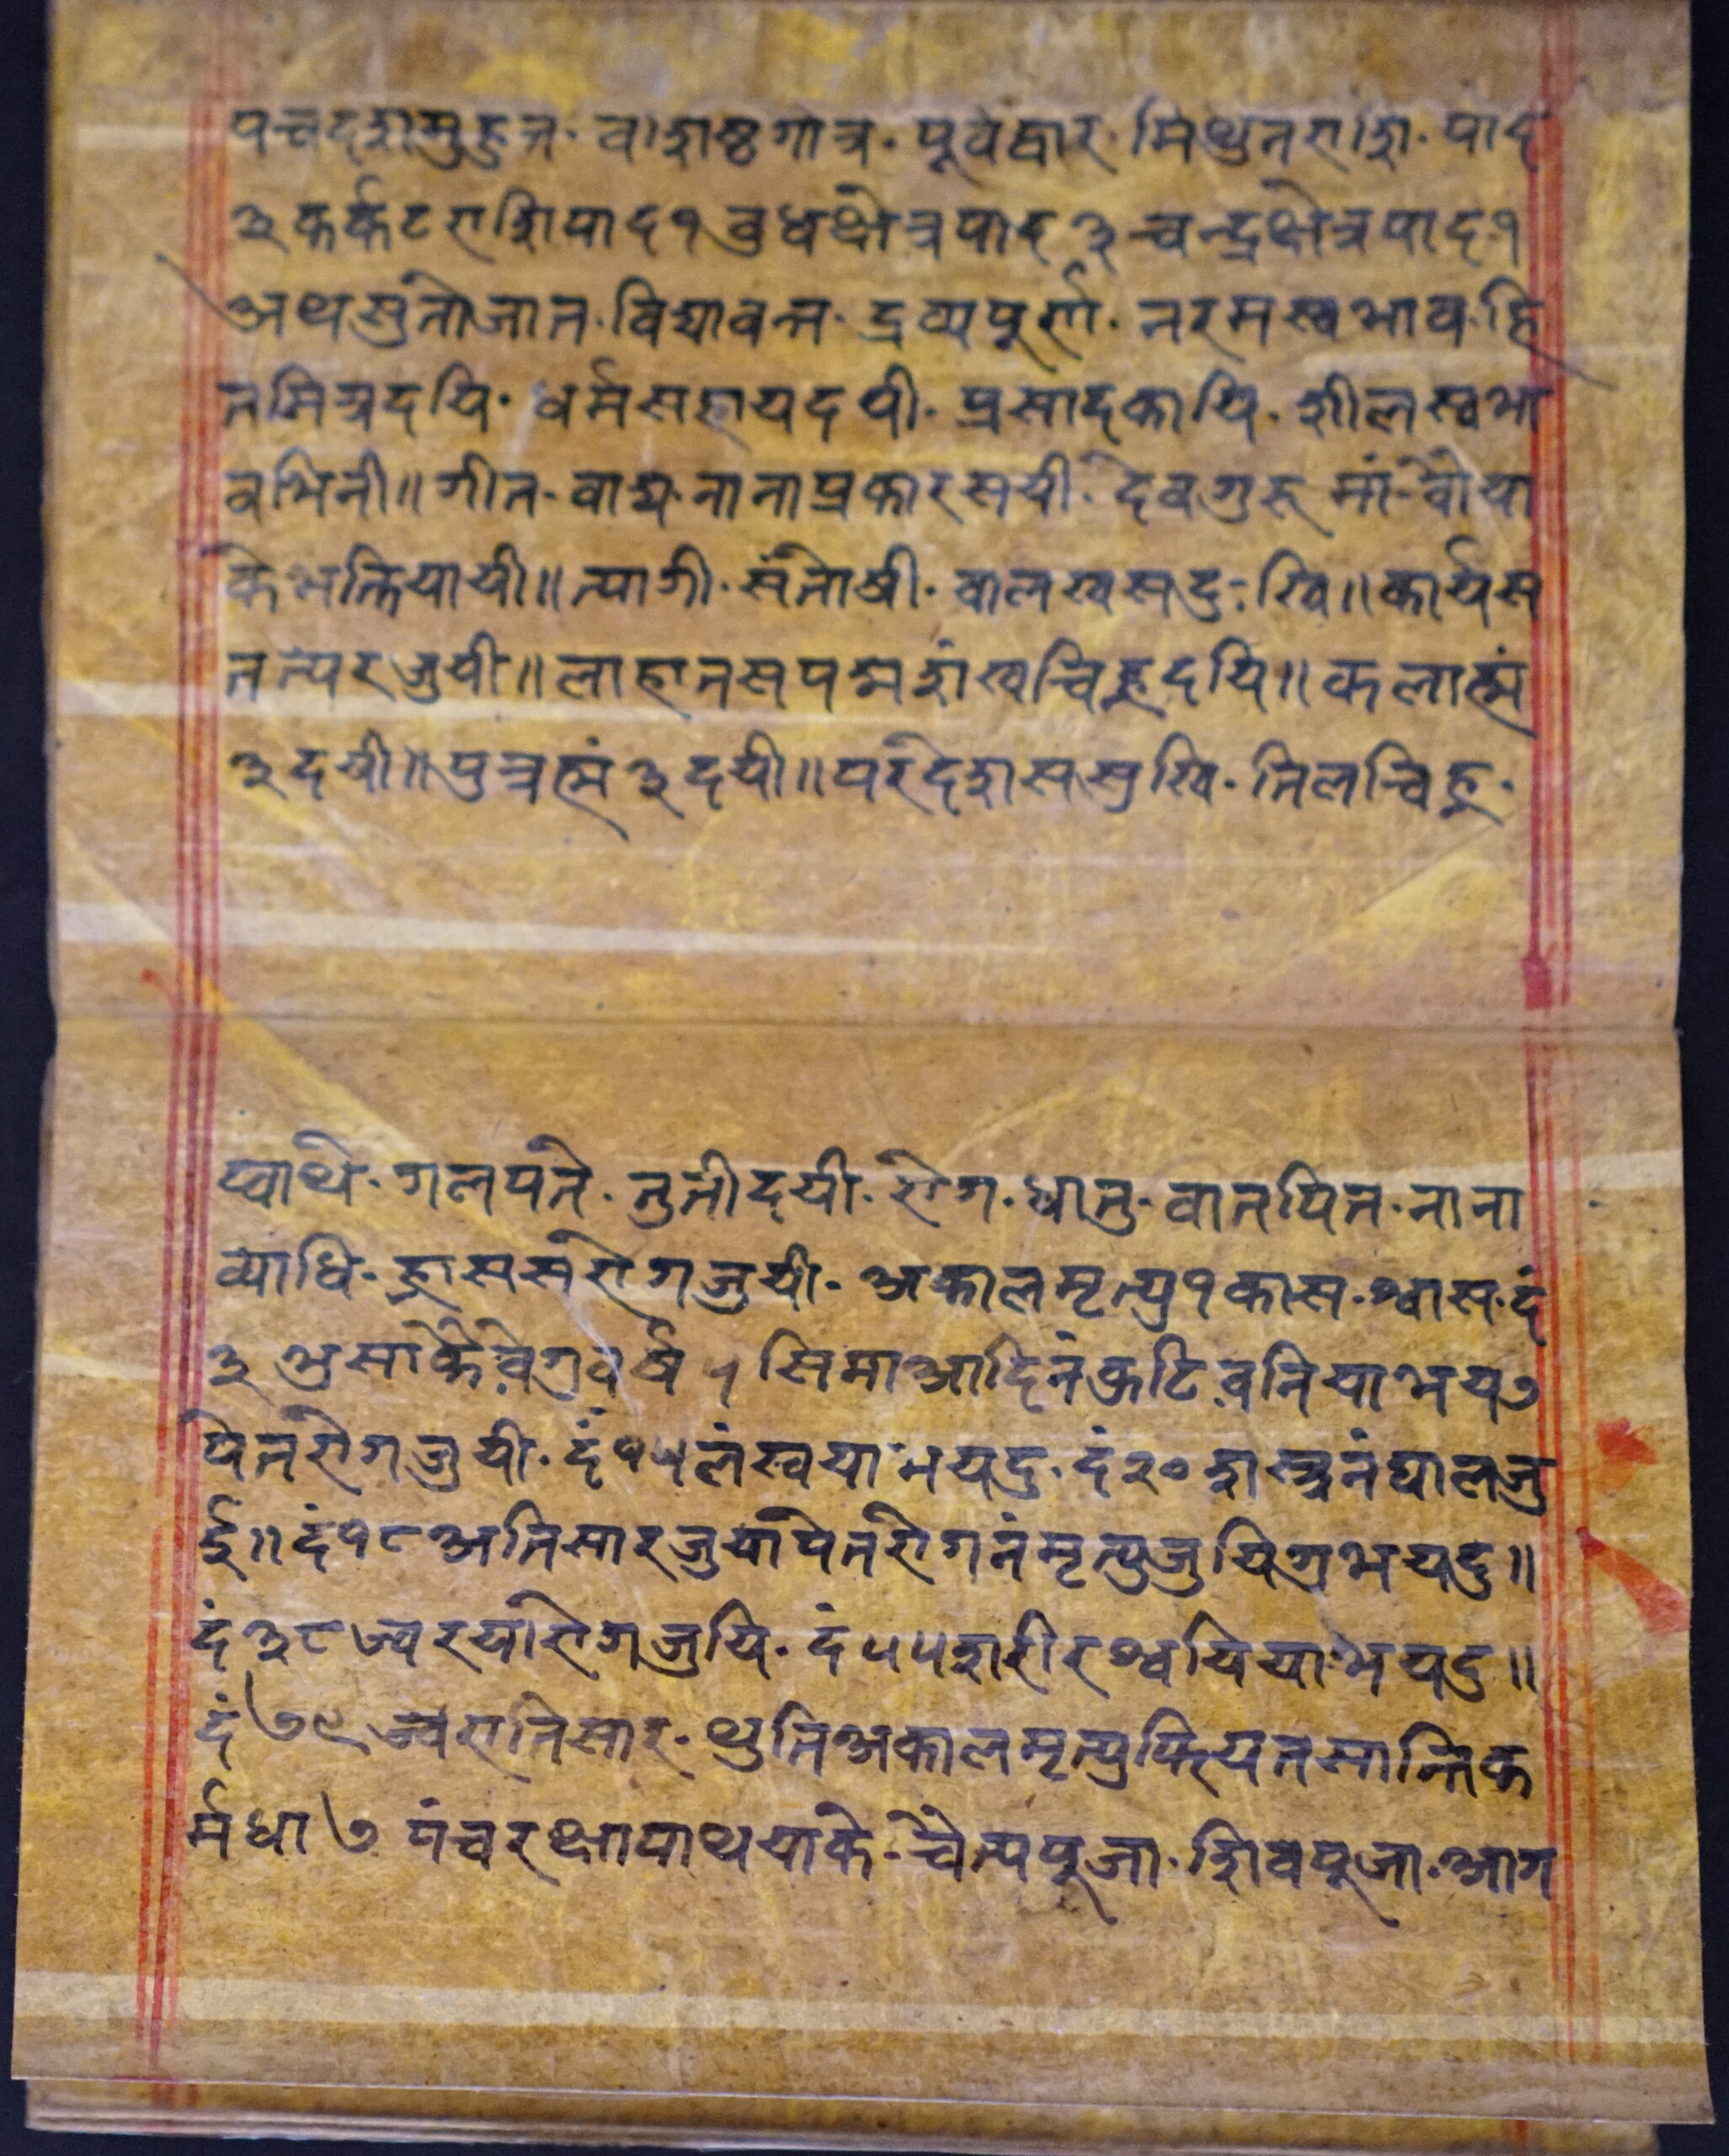 पञ्चदशमुहुत्र. वाशष्ठगोत्र. पूर्वद्वार. मिथुनराशि. पाद
३ कर्कटराशिपाद १ वुधक्षेत्रपाद ३ चन्द्रक्षेत्रपाद. १
अथशुंतोजात. विद्यावन्त. द्रव्यपूर्ण. नरमस्वभाव. हि
तमित्रदयि. धर्मसहायदयी. प्रसादकायि. शीलस्वभा
वभिनी॥ गीत. वाद्य. नानाप्रकारसयी. देवगुरु मां-वौया
केभक्तियायी॥ त्यागी. संतोषी. वालखसदुःखि॥ कार्यस
तत्परजुयी॥ लाहातसपद्मशंखचिह्नदयि॥ कलात्मं
३ दयी॥ पुत्रत्मं ३ दयी॥ परदेशससुखि. तिलचिह्न.
प्वाथे. गलपते. तुतीदयी. रोग. धातु. वातपित. नाना
व्याधि. ह्रासस रोगजुयी. अकालमृत्यु १ कास. श्वास. दं
३ असाकेवेगुवर्ष १ सिमाआदिनंकुटिवनियाभय ७
पेतरोगजुयी. दं १५ लंखयाभयदु. दं २० शस्त्रनंघालजु
ई॥ दं १८ अतिसारजुयापेतरोगनंमृत्युजुयिगुभयदु॥
दं ३८ ज्वरयारोगजुयि. दं ५५ शरीरथ्वयियाभयदु॥
दं ७९ ज्वरातिसार. थुतिअकालमृत्युफियतसान्तिक
र्मधा ७ पंचरक्षापाथयाके. चैत्यपूजा. शिवपूजा. आग